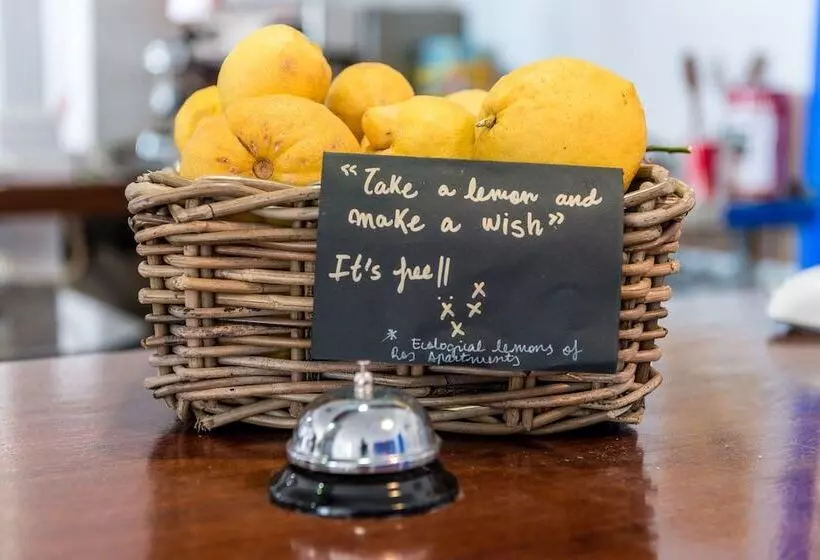 «Take a lemon and
make a wish»
It's free!!
x
x x
x
* Ecological lemons of
Apartments